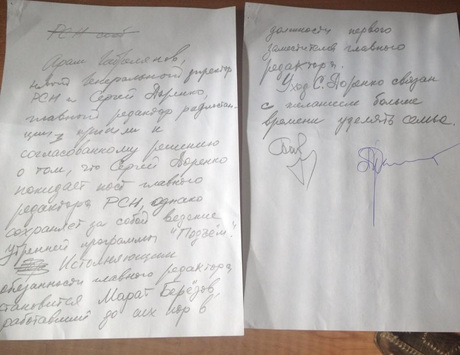 РСН
Арам Габрелянов,
новый генеральный директор
РСН и Сергей Доренко,
главный редактор радиостан-
ции пришли к
согласованному решению
о том, что Сергей Доренко
покидает пост главного
редактора РСН, однако
сохраняет за собой ведение
утренней программы "Подъём".
Исполняющим
обязанности главного редактора
становится Марат Берёзов,
работавший до сих пор в
должности первого
заместителя главного
редактора.
Уход С. Доренко связан
с желанием больше
времени уделять семье.